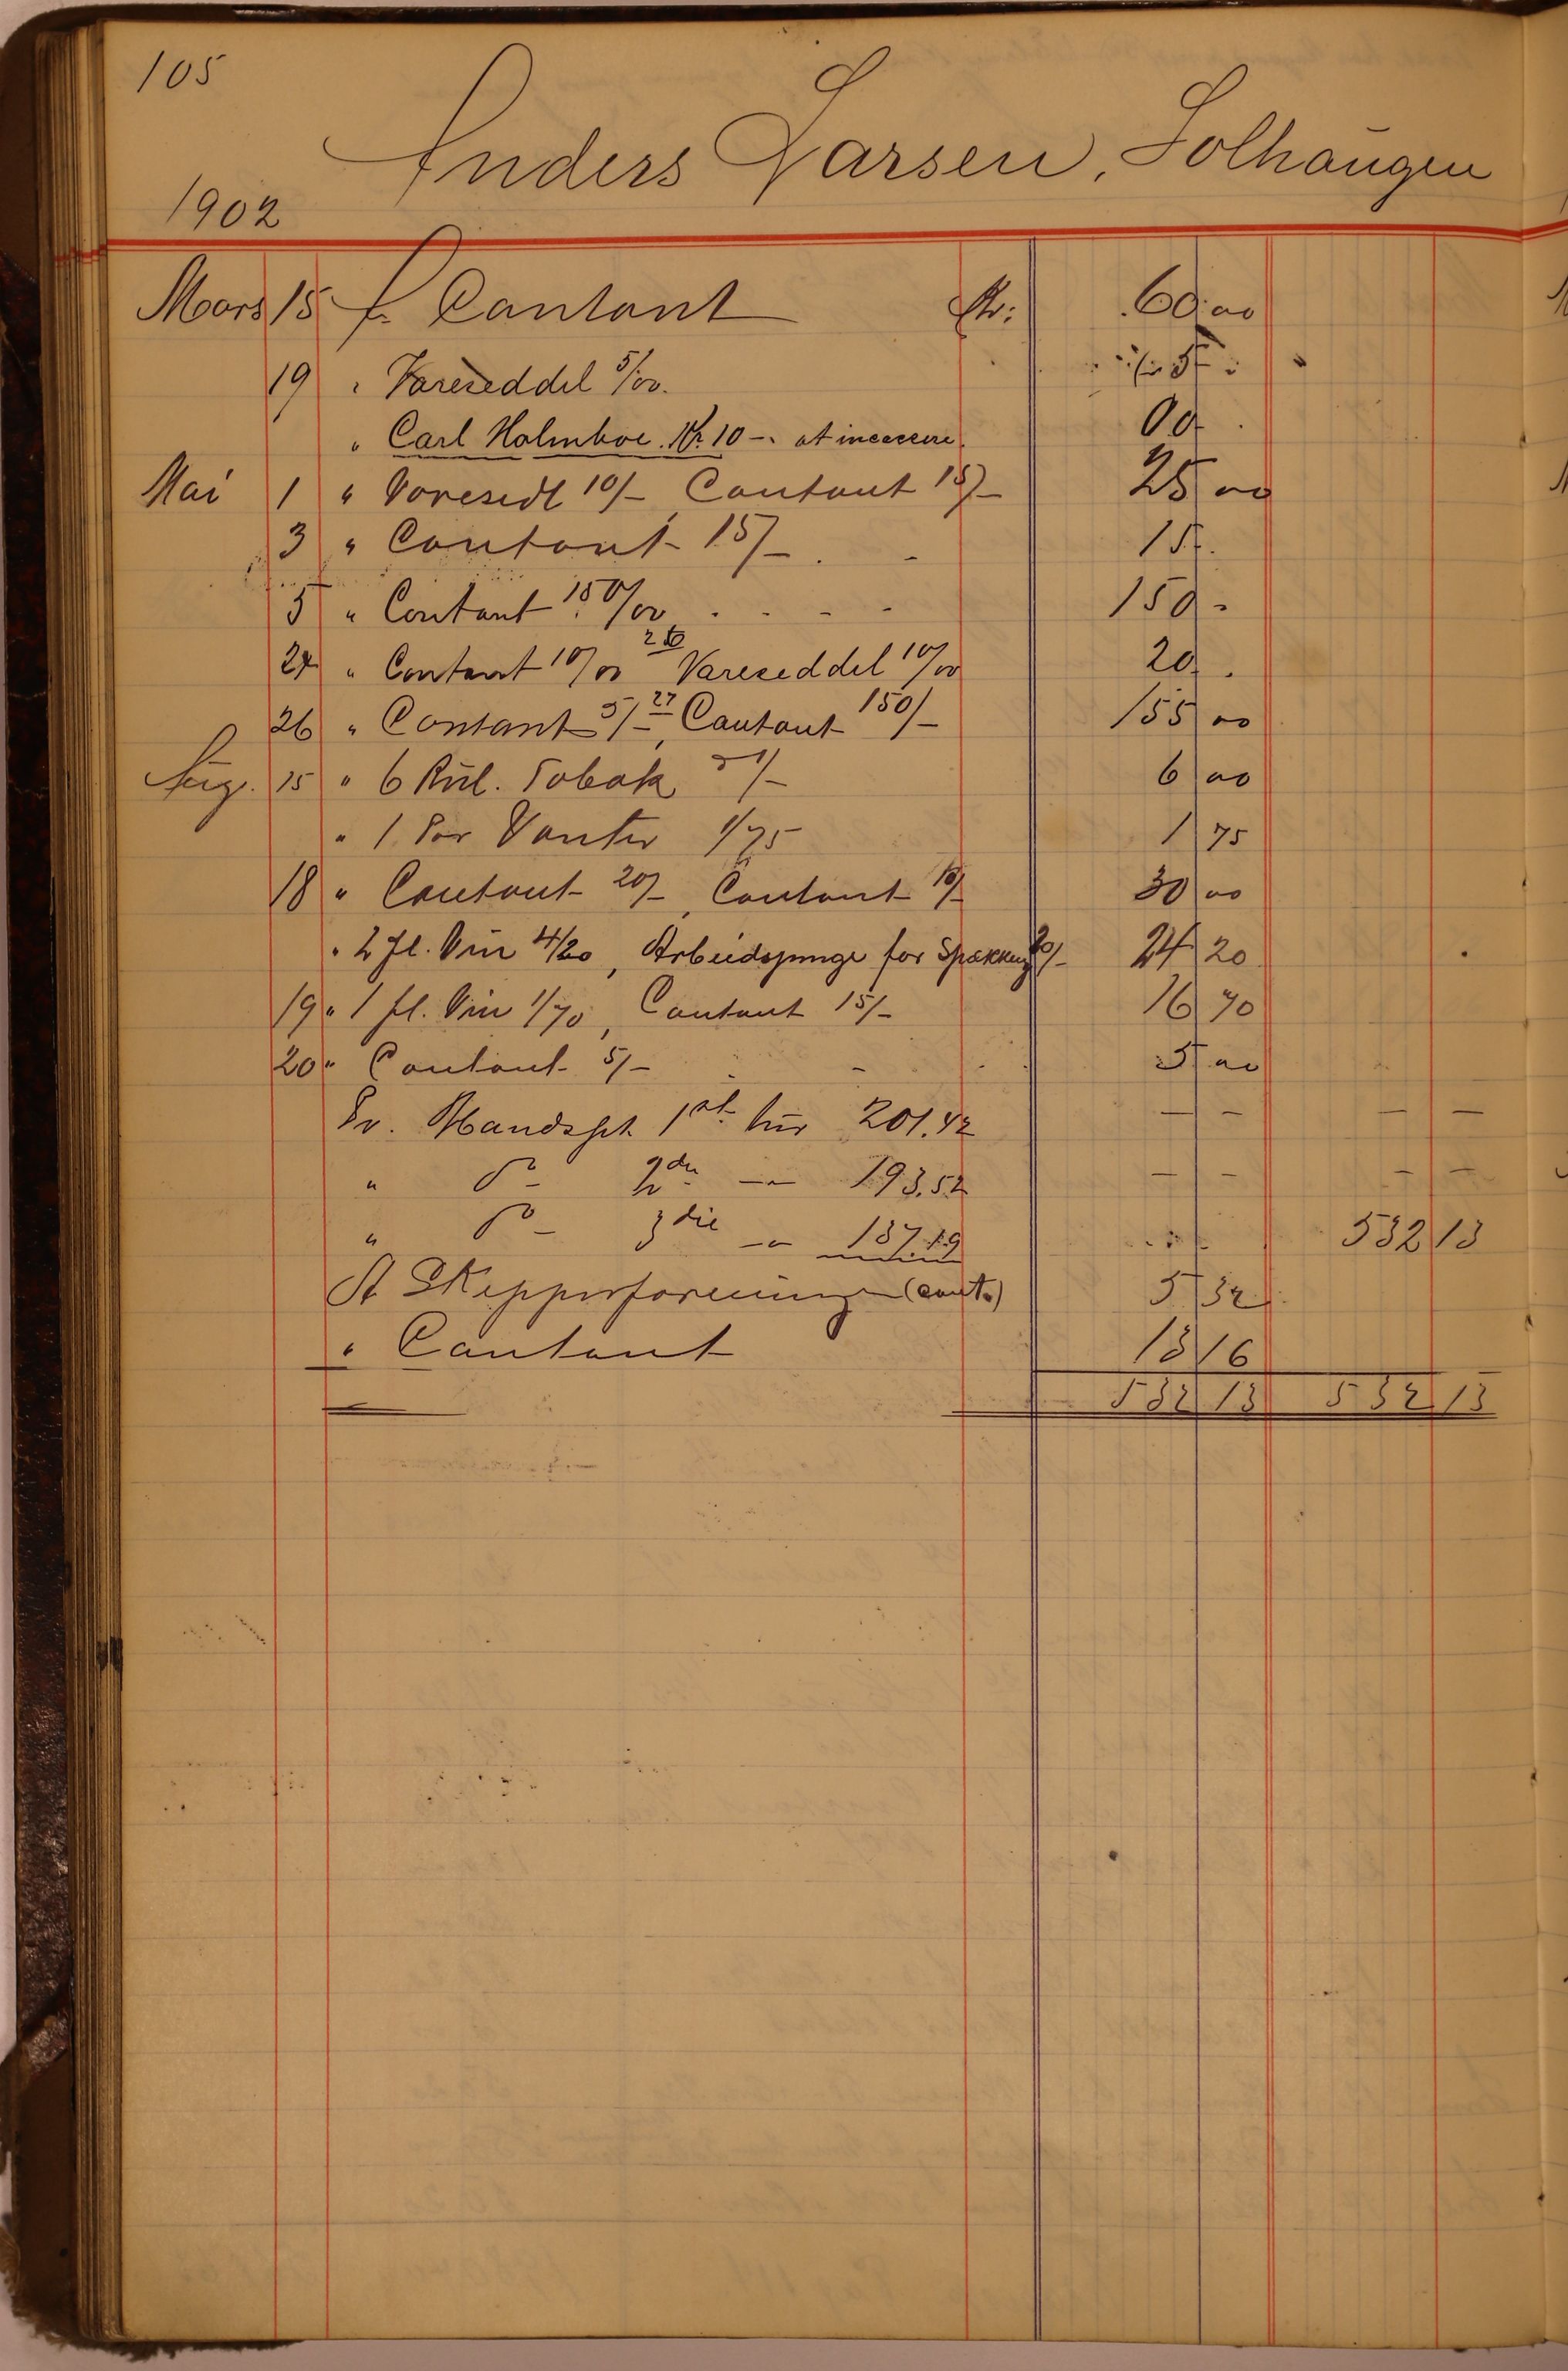 105
Anders Larsen, Solhaugen
1902
Mars 15 f. Contant Kr: 60 00
19 " Vareseddel 5/00. 5 -
" Carl Holmboe. Kr. 10 -. at incassere. 00
Mai 1 " Varesedl 10/-, Contant 15/- 25 00
3 " Contant 15/- . - 15 .
5 " Contant 150/00 . - - - 150 -
24 " Contant 10/00 Vareseddel 10/00 20 .
26 " Contant 5/- 27, Contant 150/- 155 00
Aug. 15 " 6 Rul. Tobak 1/- 6 00
" 1 Par Vanter 1/75 1 75
18 " Contant 20/-, Contant 10/- 30 00
" 2 fl. Vin 4/20, Arbeidspenge for Spækking 20/- 24 20
19 " 1 fl. Vin 1/70, Contant 15/- 16 70
20 " Contant 5/- - - - 5 00
Pr. Mandsplt 1st tur 201.42 — - — —
" do - 2den — 193.52 — - - —
" do - 3die — 137.19 532 13
A Skipperforeningen (cont.) 5 32
" Contant 13 16
532 13 532 13